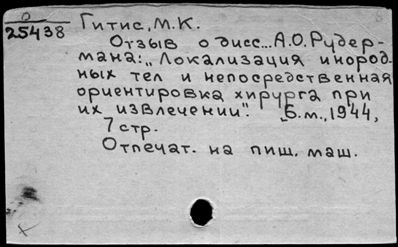 0
25438
Гитис, М.К.
Отзыв о дисс... А.О. Рудер-
мана: „Локализация инород-
ных тел и непосредственная
ориентировка хирурга при
их извлечении". Б.м., 1944,
7 стр.
Отпечат. на пиш. маш.